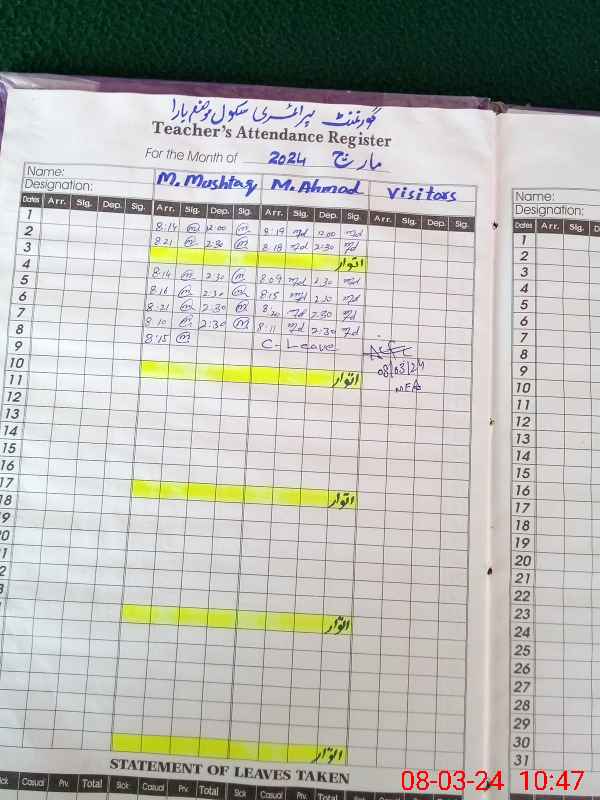 گورنمنٹ پرائمری سکول موضع بارا
Teacher's Attendance Register
For the Month of 2024 مارچ
Name: M. Mushtaq M. Ahmad Visitors
Designation:
Dates Arr. Sig. Dep. Sig. Arr. Sig. Dep. Sig. Arr. Sig. Dep. Sig. Arr. Sig. Dep. Sig.
1
2 8:14 m 12:00 m 8:19 12:00
3 8:21 m 2:30 m 8:18 2:30
4 اتوار
5 8:14 m 2:30 m 8:09 2:30
6 8:16 m 2:30 m 8:15 2:30
7 8:21 m 2:30 m 8:20 2:30
8 8:10 m 2:30 m 8:11 2:30
9 8:15 m C-Leave
08/03/24
MEA
10 اتوار
11
12
13
14
15
16
17 اتوار
18
19
20
21
22
23 اتوار
اتوار
STATEMENT OF LEAVES TAKEN
Sick Casual Prv. Total Sick Casual Prv. Total Sick Casual Prv. Total Sick
Name:
Designation:
Dates Arr. Sig. D
1
2
3
4
5
6
7
8
9
10
11
12
13
14
15
16
17
18
19
20
21
22
23
24
25
26
27
28
29
30
31
08-03-24 10:47